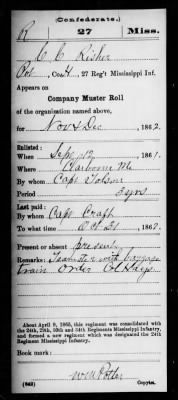 (Confederate.)
R 27 Miss.
C C Risher
Pvt , Co. H , 27 Reg't Mississippi Inf.
Appears on
Company Muster Roll
of the organization named above,
for Nov & Dec , 1862.
Enlisted:
When Sept 12 , 1861.
Where Claiborne Mi
By whom Capt
Period 3 yrs
Last paid:
By whom Capt Craft
To what time Oct 31 , 1862.
Present or absent present
Remarks: Teamster with baggage
train Order Col Hays
About April 9, 1865, this regiment was consolidated with
the 24th, 29th, 30th and 34th Regiments Mississippi Infantry,
and formed a new regiment which was designated the 24th
Regiment Mississippi Infantry.
Book mark:
(642) Copyist.